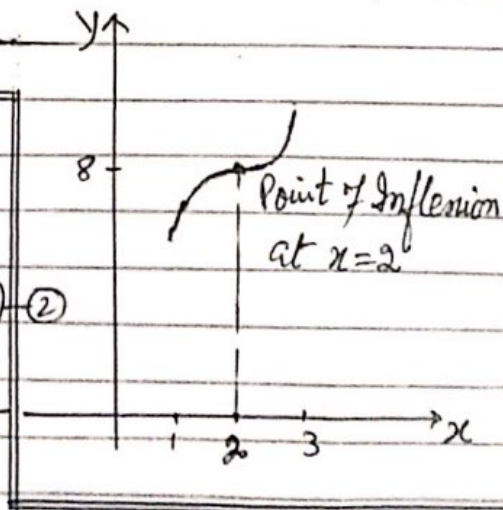 y
8
Point of Inflexion
at x=2
②
1 2 3
x